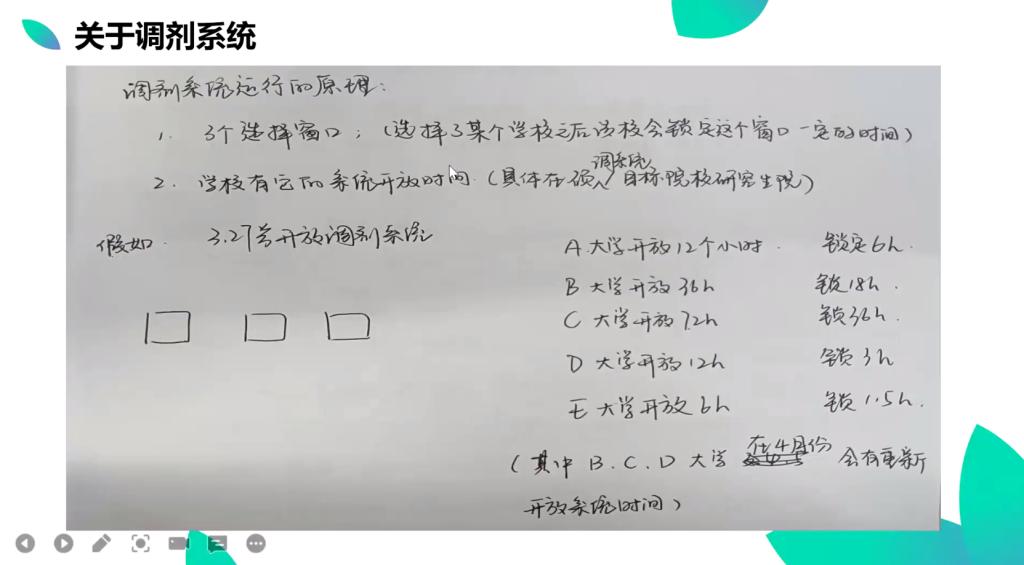 关于调剂系统
调剂系统运行的原理：
1. 3个选择窗口；（选择了某个学校之后该校会锁定这个窗口一定的时间）
调系统
2. 学校有它的系统开放时间.（具体在硕/目标院校研究生院）
假如. 3.27号开放调剂系统
A.大学开放12个小时. 锁定6h.
B 大学开放36h 锁18h.
C 大学开放72h 锁36h.
D 大学开放12h 锁3h
E 大学开放6h 锁1.5h.
在4月份
（其中B.C.D大学 会有重新
开放系统时间）